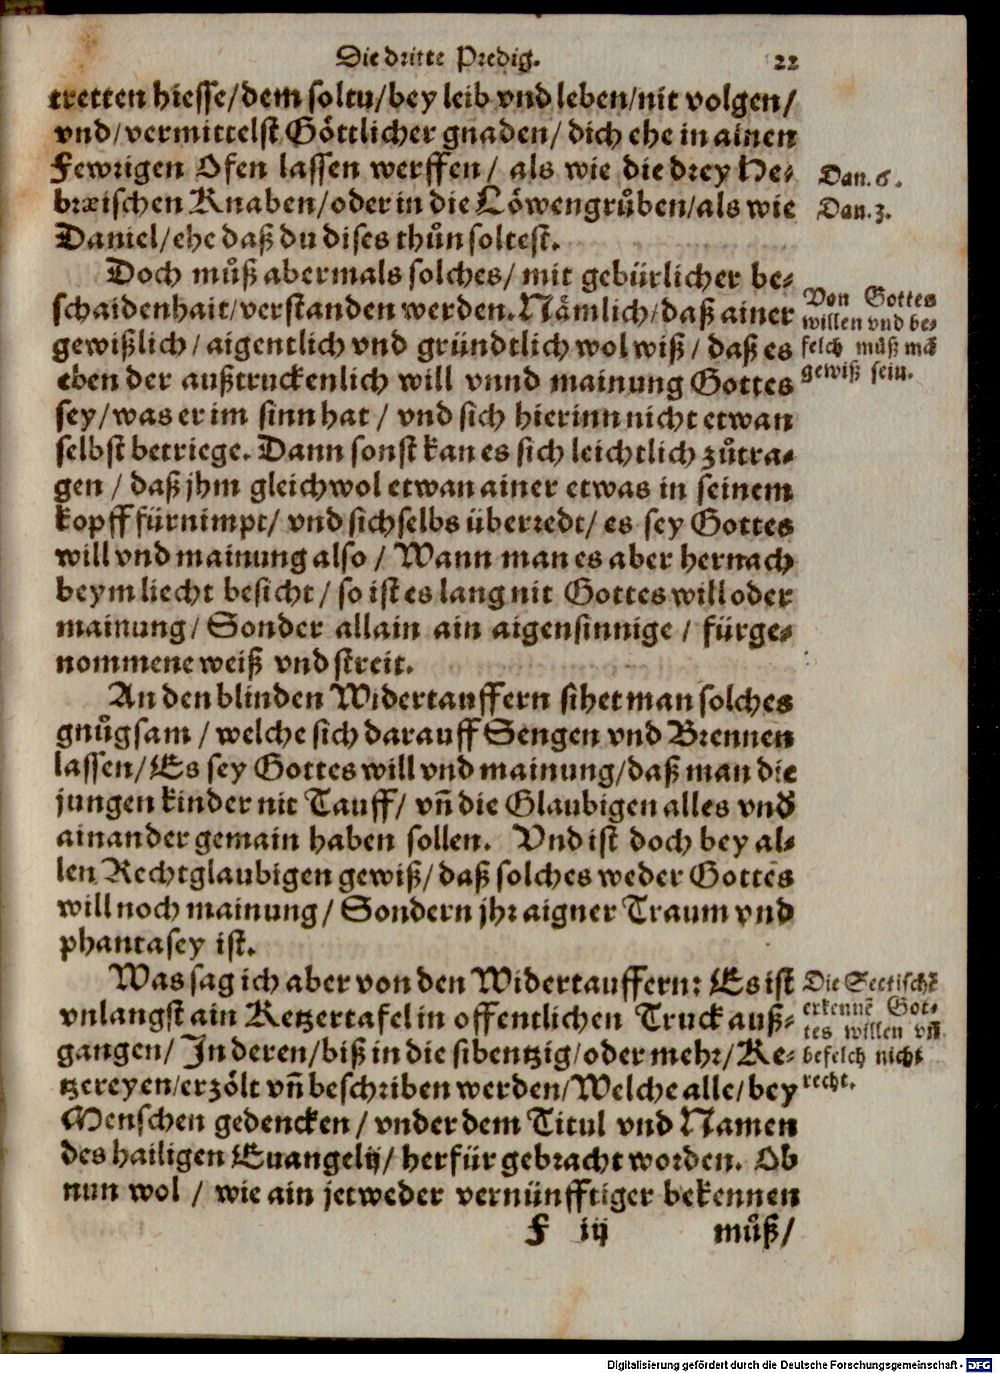 Die dritte Predig. 22
tretten hiesse/dem soltu/bey leib vnd leben/nit volgen/
vnd/vermittelst Göttlicher gnaden/ dich ehe in ainen
Fewrigen Ofen lassen werffen/ als wie die drey He-
bræischen Knaben/oder in die Löwengrůben/als wie
Daniel/ehe daß du dises thůn soltest.
Dan. 6.
Dan. 3.
Doch můß abermals solches/ mit gebürlicher be-
schaidenhait/verstanden werden. Nämlich/daß ainer
gewißlich/aigentlich vnd gründtlich wol wiß/ daß es
eben der außtruckenlich will vnnd mainung Gottes
sey/was er im sinn hat/ vnd sich hierinn nicht etwan
selbst betriege. Dann sonst kan es sich leichtlich zůtra-
gen/ daß jhm gleichwol etwan ainer etwas in seinem
kopff fürnimpt/ vnd sich selbs überredt/ es sey Gottes
will vnd mainung also/ Wann man es aber hernach
beym liecht besicht/ so ist es lang nit Gottes will oder
mainung/ Sonder allain ain aigensinnige/ fürge-
nommene weiß vnd streit.
Von Gottes
willen vnd be-
felch můß mā
gewiß sein.
An den blinden Widertauffern sihet man solches
gnůgsam/ welche sich darauff Sengen vnd Brennen
lassen/Es sey Gottes will vnd mainung/daß man die
jungen kinder nit Tauff/ vñ die Glaubigen alles vnd
ainander gemain haben sollen. Vnd ist doch bey al-
len Rechtglaubigen gewiß/daß solches weder Gottes
will noch mainung/ Sondern jhr aigner Traum vnd
phantasey ist.
Was sag ich aber von den Widertauffern: Es ist
vnlangst ain Ketzertafel in offentlichen Truck auß-
gangen/ In deren/biß in die sibentzig/oder mehr/Ke-
tzereyen/erzölt vñ beschriben werden/Welche alle/bey
Menschen gedencken/ vnder dem Titul vnd Namen
des hailigen Euangelij/ herfür gebracht worden. Ob
nun wol/ wie ain jetweder vernünfftiger bekennen
Die Sectischē
erkennē Got-
tes willen vñ
befelch nicht
recht.
F iij můß/
Digitalisierung gefördert durch die Deutsche Forschungsgemeinschaft - DFG